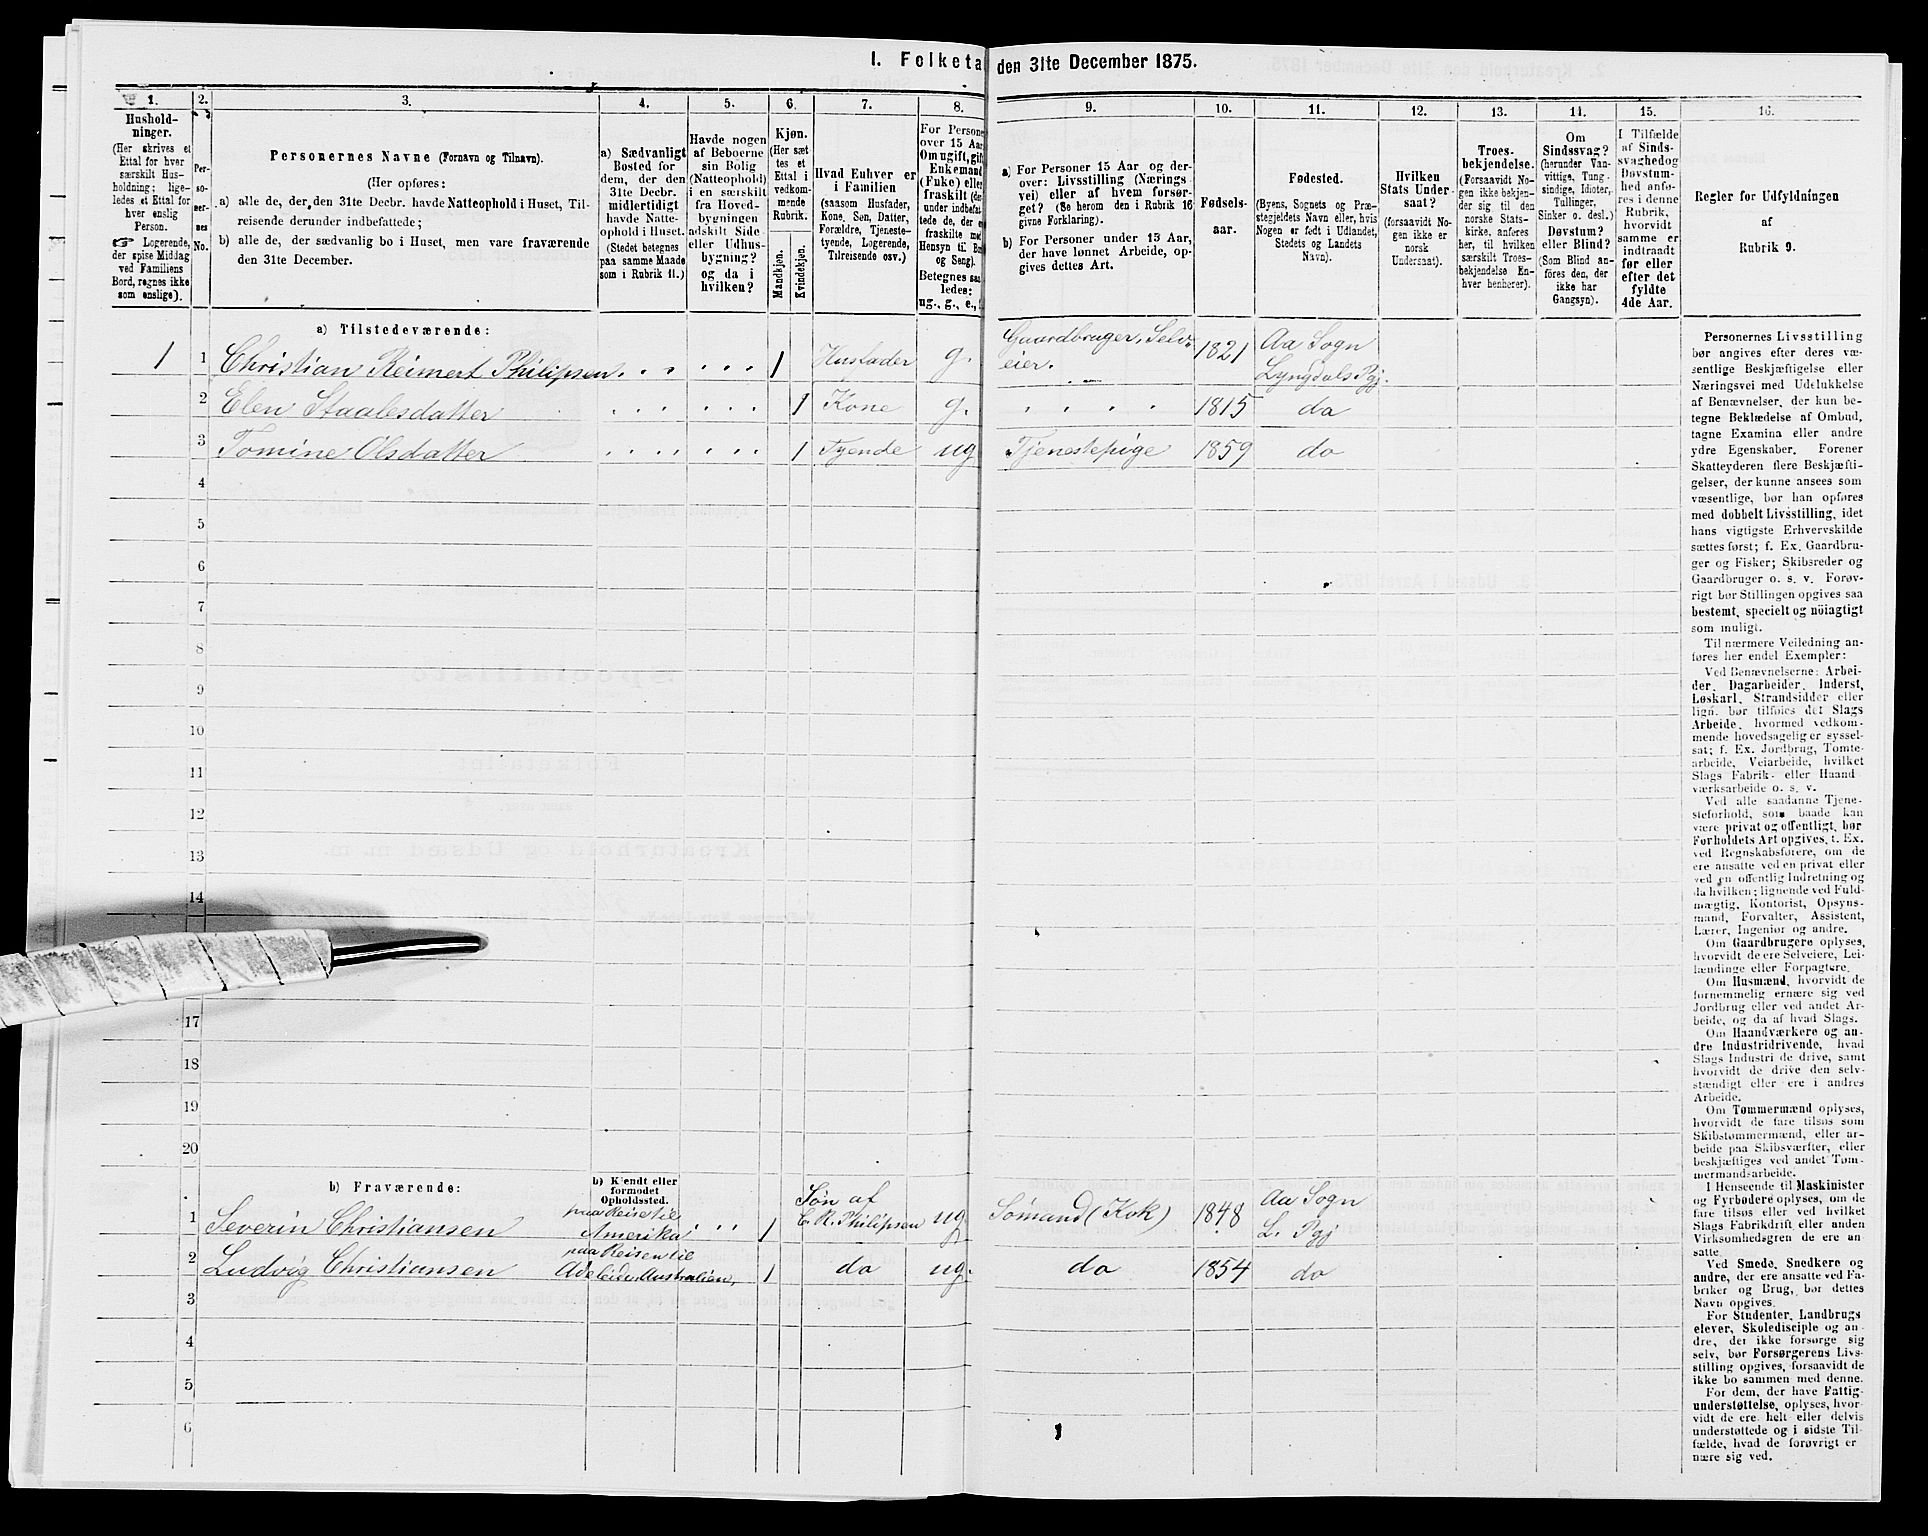 I. Folketa
den 31te December 1875.
1.
Hushold-
ninger.
(Her skrives et
Ettal for hver
særskilt Hus-
holdning; lige-
ledes et Ettal for
hver enslig
Person.
☞ Logerende,
der spise Middag
ved Familiens
Bord, regnes ikke
som enslige).
2.
Per-
so-
ner-
nes
No.
3.
Personernes Navne (Fornavn og Tilnavn).
(Her opføres:
a) alle de, der den 31te Decbr. havde Natteophold i Huset, Til-
reisende derunder indbefattede;
b) alle de, der sædvanlig bo i Huset, men vare fraværende
den 31te December.
4.
a) Sædvanligt
Bosted for
dem, der den
31te Decbr.
midlertidigt
havde Natte-
ophold i Huset.
(Stedet betegnes
paa samme Maade
som i Rubrik 11.)
5.
Havde nogen
af Beboerne
sin Bolig
(Natteophold)
i en særskilt
fra Hoved-
bygningen
adskilt Side-
eller Udhus-
bygning?
og da i
hvilken?
6.
Kjøn.
(Her sæt
tes et
Ettal i
vedkom-
mende
Rubrik.
Mandkjøn.
Kvindekjøn.
7.
Hvad Enhver er
i Familien
(saasom Husfader,
Kone, Søn, Datter,
Forældre, Tjeneste-
tyende, Logerende,
Tilreisende osv.)
8.
For Persone
over 15 Aar
Om ugift, gift
Enkemand
(Enke) eller
fraskilt (der
under indbefat
tede de, der er
fraskilte med
Hensyn til Bo
og Seng).
Betegnes saa
ledes:
ug., g., e., f.
9.
a) For Personer 15 Aar og der-
over: Livsstilling (Nærings
vei) eller af hvem forsør-
get? (Se herom den i Rubrik 16
givne Forklaring).
b) For Personer under 15 Aar,
der have lønnet Arbeide, op-
gives dettes Art.
10.
Fødsels-
aar.
11.
Fødested.
(Byens, Sognets og Præ-
stegjeldets Navn eller, hvis
Nogen er født i Udlandet,
Stedets og Landets
Navn).
12.
Hvilken
Stats Under-
saat?
(forsaavidt No-
gen ikke er
norsk
Undersaat).
13.
Troes-
bekjendelse.
(Forsaavidt No-
gen ikke bekjen-
der sig til den
norske Stats-
kirke, anføres
her, til hvilken
særskilt Troes-
bekjendelse En-
hver henhører).
14.
Om
Sindssvag?
(herunder Van-
vittige, Tung-
sindige, Idioter,
Tullinger,
Sinker o. desl.)
Døvstum?
eller Blind?
(Som Blind an-
føres den, der
ikke har
Gangsyn).
15.
I Tilfælde
af Sinds-
svaghed og
Døvstum-
hed anfø-
res i denne
Rubrik,
hvorvidt
samme er
indtraadt
før eller
efter det
fyldte
4de Aar.
16.
Regler for Udfyldningen
af
Rubrik 9.
a) Tilstedeværende:
1 1 Christian Reimert Philipsen 1 Husfader g. Gaardbruger, Selv- eier. 1821 Aa Sogn Lyngdals Pgj.
2 Elen Staalesdatter 1 Kone g. 1815 do
3 Tomine Olsdatter 1 Tyende ug Tjenestepige 1859 do
4
5
6
7
8
9
10
11
12
13
14
17
18
19
20
b) Fraværende:
b) Kjendt eller
formodet
Opholdssted.
1 Severin Christiansen paa Reise til Amerika 1 Søn af C. R. Philipsen ug. Sømand (Kok) 1848 Aa Sogn L. Pgj
2 Ludvig Christiansen paa Reisen til Adelaide, Australien, 1 do ug. do 1854 do
3
4
5
6
Personernes Livsstilling
bør angives efter deres væ-
sentlige Beskjæftigelse eller
Næringsvei med Udelukkelse
af Benævnelser, der kun be-
tegne Beklædelse af Ombud,
tagne Examina eller andre
ydre Egenskaber. Forener
Skatteyderen flere Beskjæfti-
gelser, der kunne ansees som
væsentlige, bør han opføres
med dobbelt Livsstilling, idet
hans vigtigste Erhvervskilde
sættes først; f. Ex. Gaardbru-
ger og Fisker; Skibsreder og
Gaardbruger o. s. v. Forøv-
rigt bør Stillingen opgives saa
bestemt, specielt og nöiagtigt
som muligt.
Til nærmere Veiledning an-
føres her endel Exempler:
Ved Benævnelserne: Arbei-
der, Dagarbeider, Inderst,
Løskarl, Strandsidder eller
lign. bør tilføies det Slags
Arbeide, hvormed vedkom-
mende hovedsagelig er syssel-
sat; f. Ex. Jordbrug, Tomte-
arbeide, Veiarbeide, hvilket
Slags Fabrik- eller Haand
værksarbeide o. s. v.
Ved alle saadanne Tjene-
steforhold, som baade kan
være privat og offentligt, bør
Forholdets Art opgives, f. Ex.
ved Regnskabsførere, om de
ere ansatte ved en privat eller
ved en offentlig Indretning og
da hvilken; lignende ved Fuld-
mægtig, Kontorist, Opsyns-
mand, Forvalter, Assistent,
Lærer, Ingeniør og andre.
Om Gaardbrugere oplyses,
hvorvidt de ere Selveiere, Lei-
lændinge eller Forpagtere.
Om Husmænd, hvorvidt de
fornemmelig ernære sig ved
Jordbrug eller ved andet Ar-
beide, og da af hvad Slags.
Om Haandværkere og an-
dre Industridrivende, hvad
Slags Industri de drive, samt
hvorvidt de drive den selv-
stændigt eller ere i andres
Arbeide.
Om Tømmermænd oplyses,
hvorvidt de fare tilsøs som
Skibstømmermænd, eller ar-
beide paa Skibsværfter, eller
beskjæftiges ved andet Tøm-
mermandsarbeide.
I Henseende til Maskinister
og Fyrbødere oplyses, om de
fare tilsøs eller ved hvilket
Slags Fabrikdrift eller anden
Virksomhedsgren de ere an-
satte.
Ved Smede, Snedkere og
andre, der ere ansatte ved Fa-
briker og Brug, bør dettes
Navn opgives.
For Studenter, Landbrugs
elever, Skoledisciple og an-
dre, der ikke forsørge sig
selv, bør Forsørgerens Livs-
stilling opgives, forsaavidt de
ikke bo sammen med denne.
For dem, der have Fattig-
understøttelse, oplyses, hvor-
vidt de ere helt eller delvis
understøttede og i sidste Til-
fælde, hvad de forøvrigt er
nære sig ved.